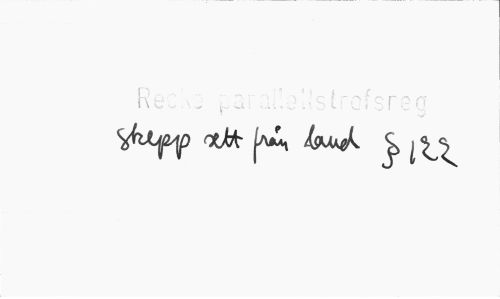 Recke parallellstrofsreg
skepp sett från land § 122